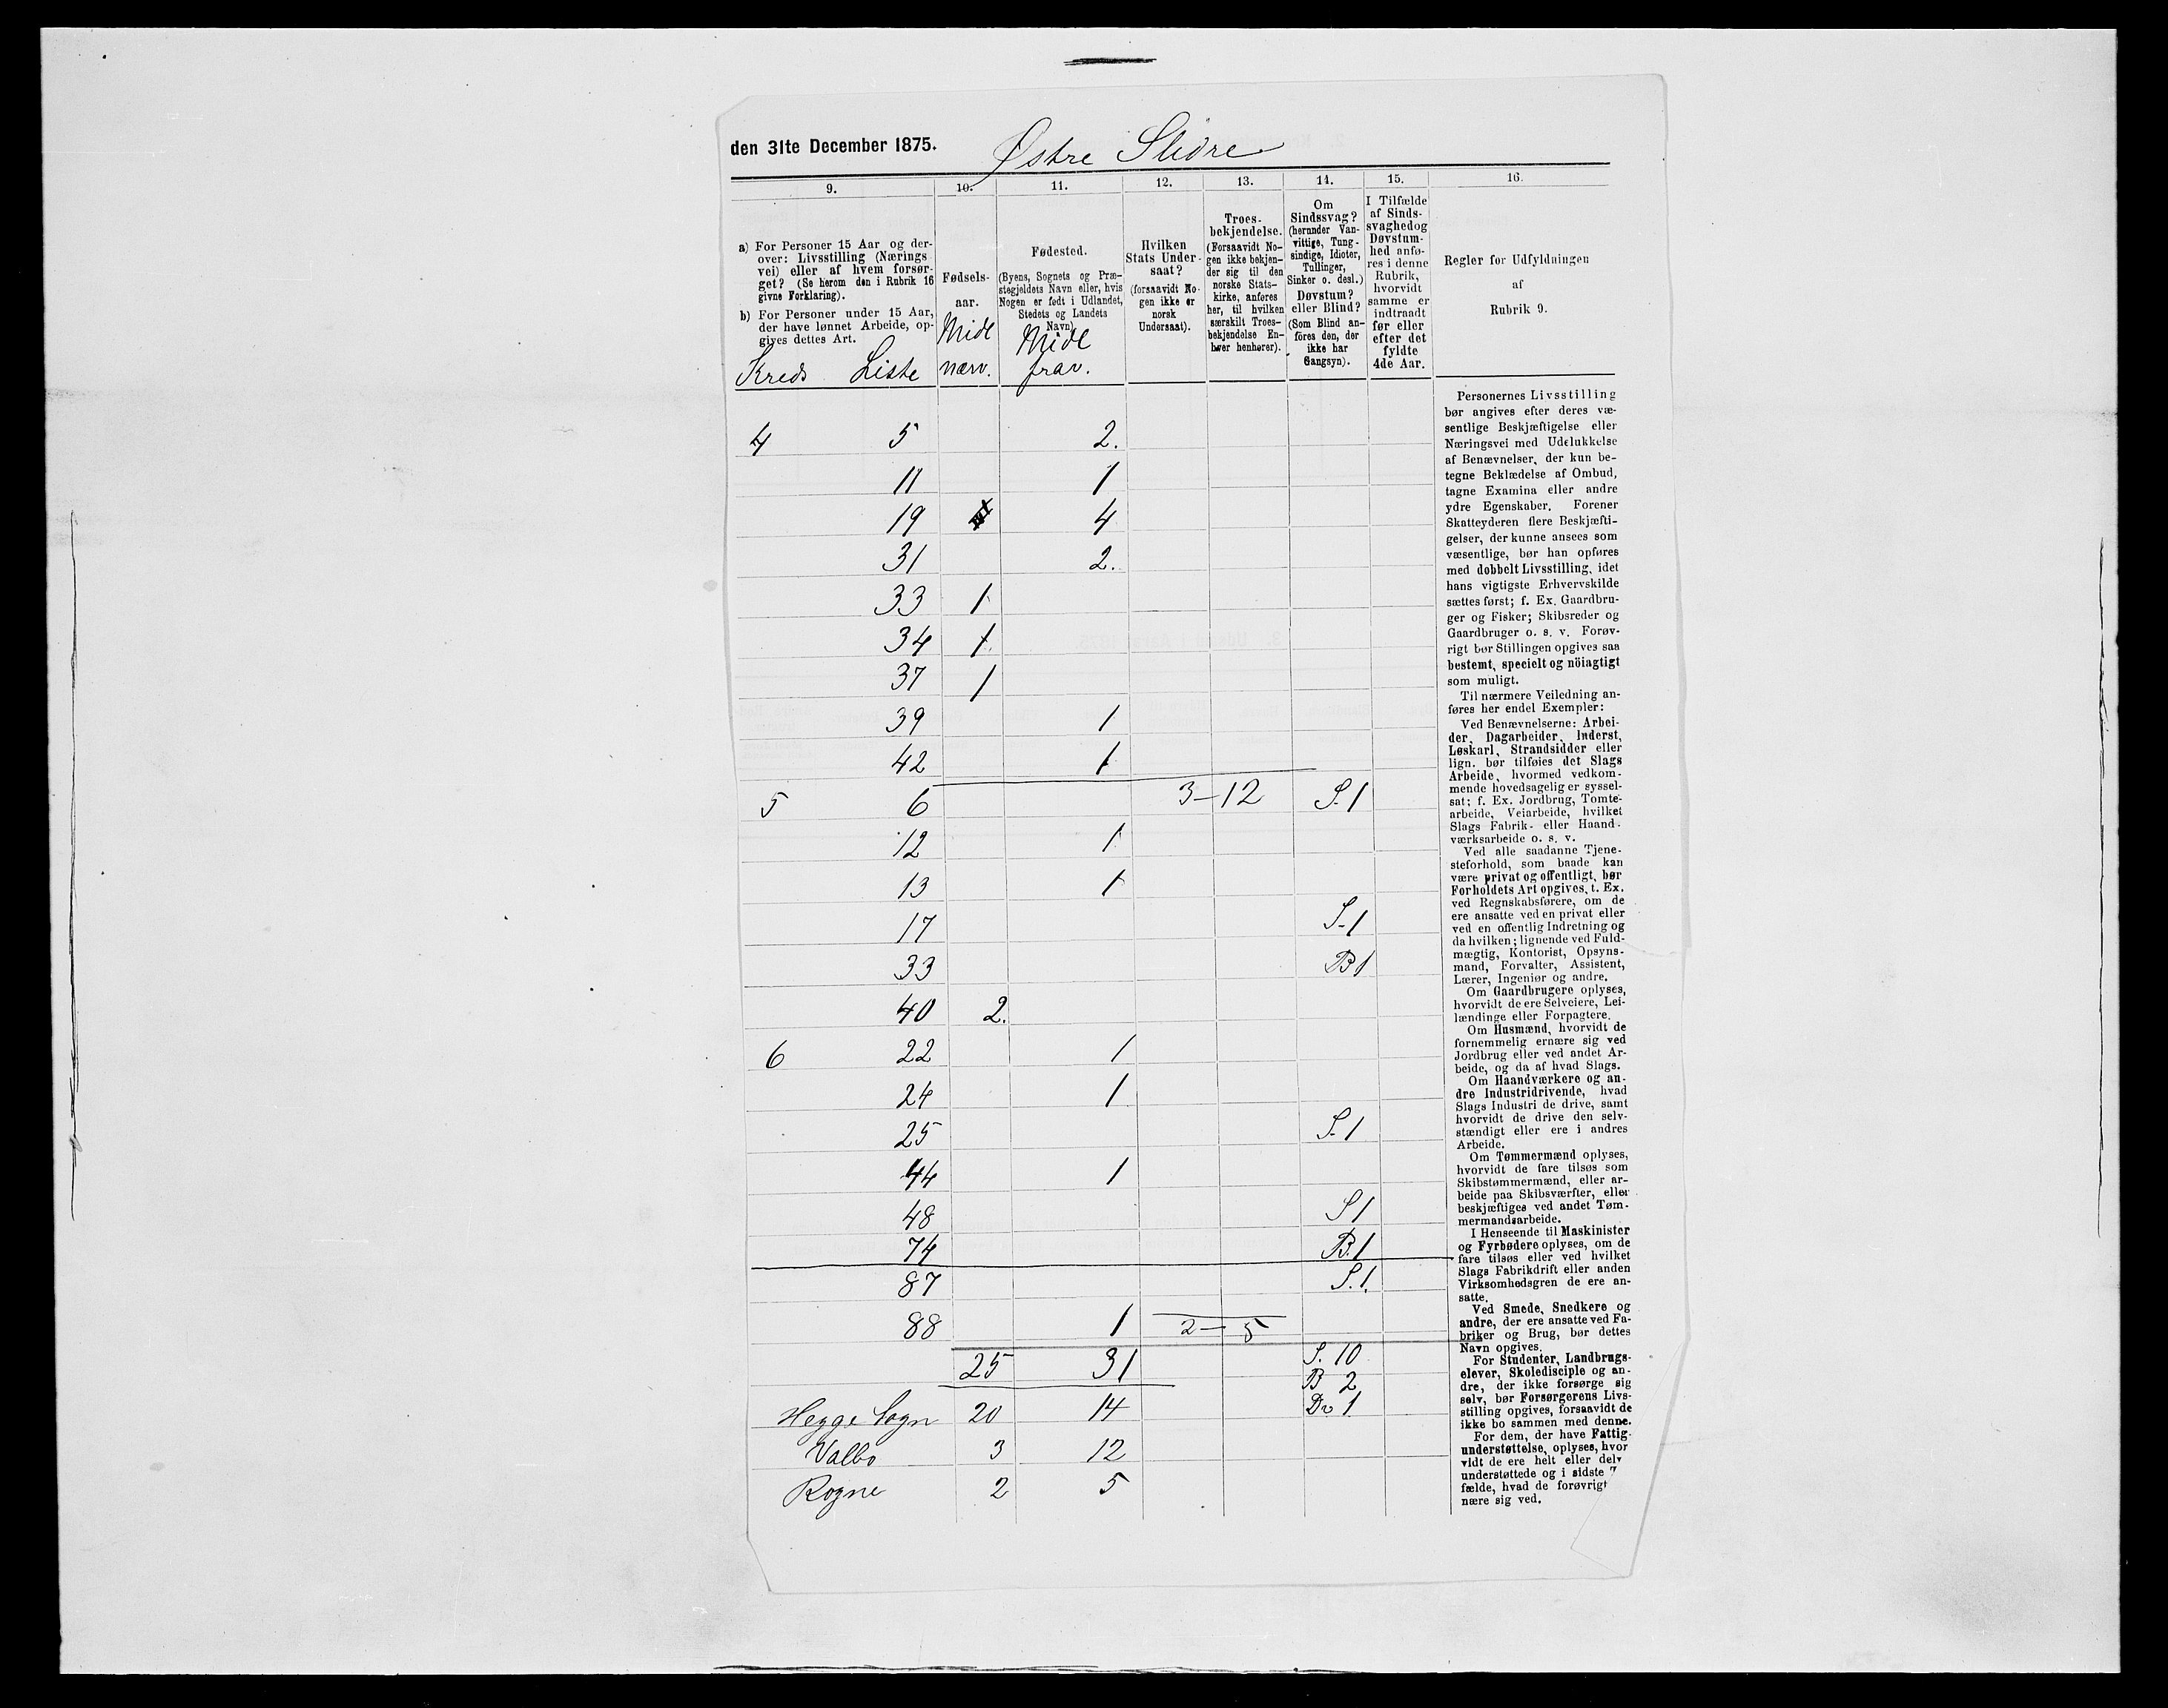 den 31te December 1875. Østre Slidre
9. 10. 11. 12. 13. 14. 15. 16.
a) For Personer 15 Aar og der-
over: Livsstilling (Nærings
vei) eller af hvem forsør-
get? (Se herom den i Rubrik 16
givne Forklaring).
b) For Personer under 15 Aar,
der have lønnet Arbeide, op-
gives dettes Art.
Kreds Liste
Fødsels-
aar.
Midl
nærv.
Fødested.
(Byens, Sognets og Præ-
stegjeldets Navn eller, hvis
Nogen er født i Udlandet,
Stedets og Landets
Navn).
Midl
frav.
Hvilken
Stats Under-
saat?
(forsaavidt No-
gen ikke er
norsk
Undersaat).
Troes-
bekjendelse.
(Forsaavidt No-
gen ikke bekjen-
der sig til den
norske Stats-
kirke, anføres
her, til hvilken
særskilt Troes-
bekjendelse En-
hver henhører).
Om
Sindssvag?
(herunder Van-
vittige, Tung-
sindige, Idioter,
Tullinger,
Sinker o. desl.)
Døvstum?
eller Blind?
(Som Blind an-
føres den, der
ikke har
Gangsyn).
I Tilfælde
af Sinds-
svaghed og
Døvstum-
hed anfø-
res i denne
Rubrik,
hvorvidt
samme er
indtraadt
før eller
efter det
fyldte
4de Aar.
Regler for Udfyldningen
af
Rubrik 9.
4 5 2.
11 1
19 4
31 2.
33 1
34 1
37 1
39 1
42 1
5 6 3-12 S.1
12 1
13 1
17 S-1
33 B1
40 2.
6 22 1
24 1
25 S-1
44 1
48 S1
74 B.1
87 S.1.
88 1 2-5
25 31 S. 10
B 2
Hegge Sogn 20 14 Dv 1
Valbo 3 12
Rogne 2 5
Personernes Livsstilling
bør angives efter deres væ-
sentlige Beskjæftigelse eller
Næringsvei med Udelukkelse
af Benævnelser, der kun be-
tegne Beklædelse af Ombud,
tagne Examina eller andre
ydre Egenskaber. Forener
Skatteyderen flere Beskjæfti-
gelser, der kunne ansees som
væsentlige, bør han opføres
med dobbelt Livsstilling, idet
hans vigtigste Erhvervskilde
sættes først; f. Ex. Gaardbru-
ger og Fisker; Skibsreder og
Gaardbruger o. s. v. Forøv-
rigt bør Stillingen opgives saa
bestemt, specielt og nöiagtigt
som muligt.
Til nærmere Veiledning an-
føres her endel Exempler:
Ved Benævnelserne: Arbei-
der, Dagarbeider, Inderst,
Løskarl, Strandsidder eller
lign. bør tilføies det Slags
Arbeide, hvormed vedkom-
mende hovedsagelig er syssel-
sat; f. Ex. Jordbrug, Tomte-
arbeide, Veiarbeide, hvilket
Slags Fabrik- eller Haand-
værksarbeide o. s. v.
Ved alle saadanne Tjene-
steforhold, som baade kan
være privat og offentligt, bør
Forholdets Art opgives, t. Ex.
ved Regnskabsførere, om de
ere ansatte ved en privat eller
ved en offentlig Indretning og
da hvilken; lignende ved Fuld-
mægtig, Kontorist, Opsyns-
mand, Forvalter, Assistent,
Lærer, Ingeniør og andre.
Om Gaardbrugere oplyses,
hvorvidt de ere Selveiere, Lei-
lændinge eller Forpagtere.
Om Husmænd, hvorvidt de
fornemmelig ernære sig ved
Jordbrug eller ved andet Ar-
beide, og da af hvad Slags.
Om Haandværkere og an-
dre Industridrivende, hvad
Slags Industri de drive, samt
hvorvidt de drive den selv-
stændigt eller ere i andres
Arbeide.
Om Tømmermænd oplyses,
hvorvidt de fare tilsøs som
Skibstømmermænd, eller ar-
beide paa Skibsværfter, eller
beskjæftiges ved andet Tøm-
mermandsarbeide.
I Henseende til Maskinister
og Fyrbødere oplyses, om de
fare tilsøs eller ved hvilket
Slags Fabrikdrift eller anden
Virksomhedsgren de ere an-
satte.
Ved Smede, Snedkere og
andre, der ere ansatte ved Fa-
briker og Brug, bør dettes
Navn opgives.
For Studenter, Landbrugs-
elever, Skoledisciple og an-
dre, der ikke forsørge sig
selv, bør Forsørgerens Livs-
stilling opgives, forsaavidt de
ikke bo sammen med denne.
For dem, der have Fattig-
understøttelse, oplyses, hvor
vidt de ere helt eller delv
understøttede og i sidste
fælde, hvad de forøvrigt
nære sig ved.